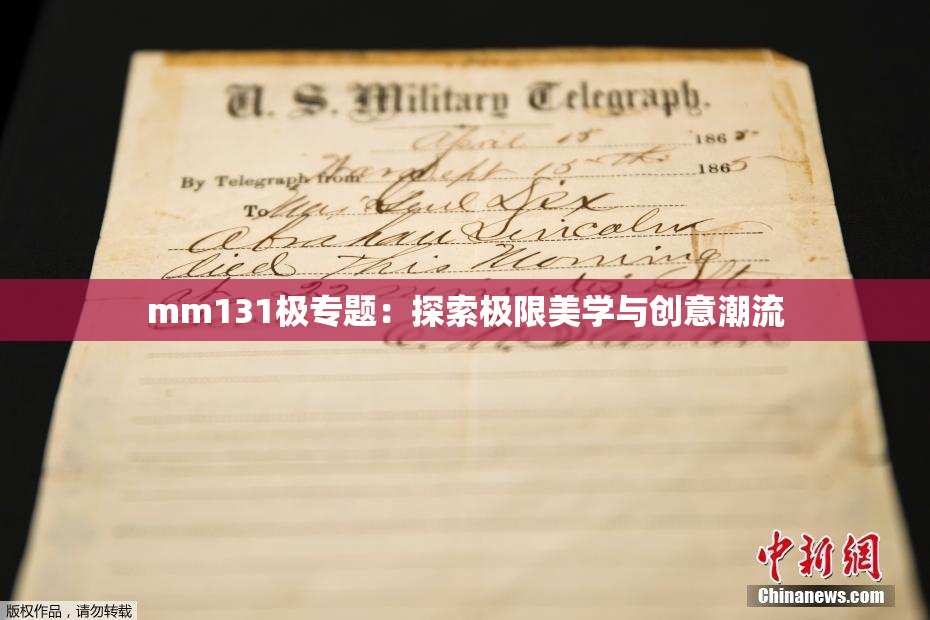 U. S. Military Telegraph.
April 15 1865
By Telegraph from War Dept 15th 1865
To Maj Genl Dix
Abraham Lincoln
died This Morning
at 22 minutes after
mm131极专题：探索极限美学与创意潮流
E. M. Stanton
中新网
Chinanews.com
版权作品，请勿转载